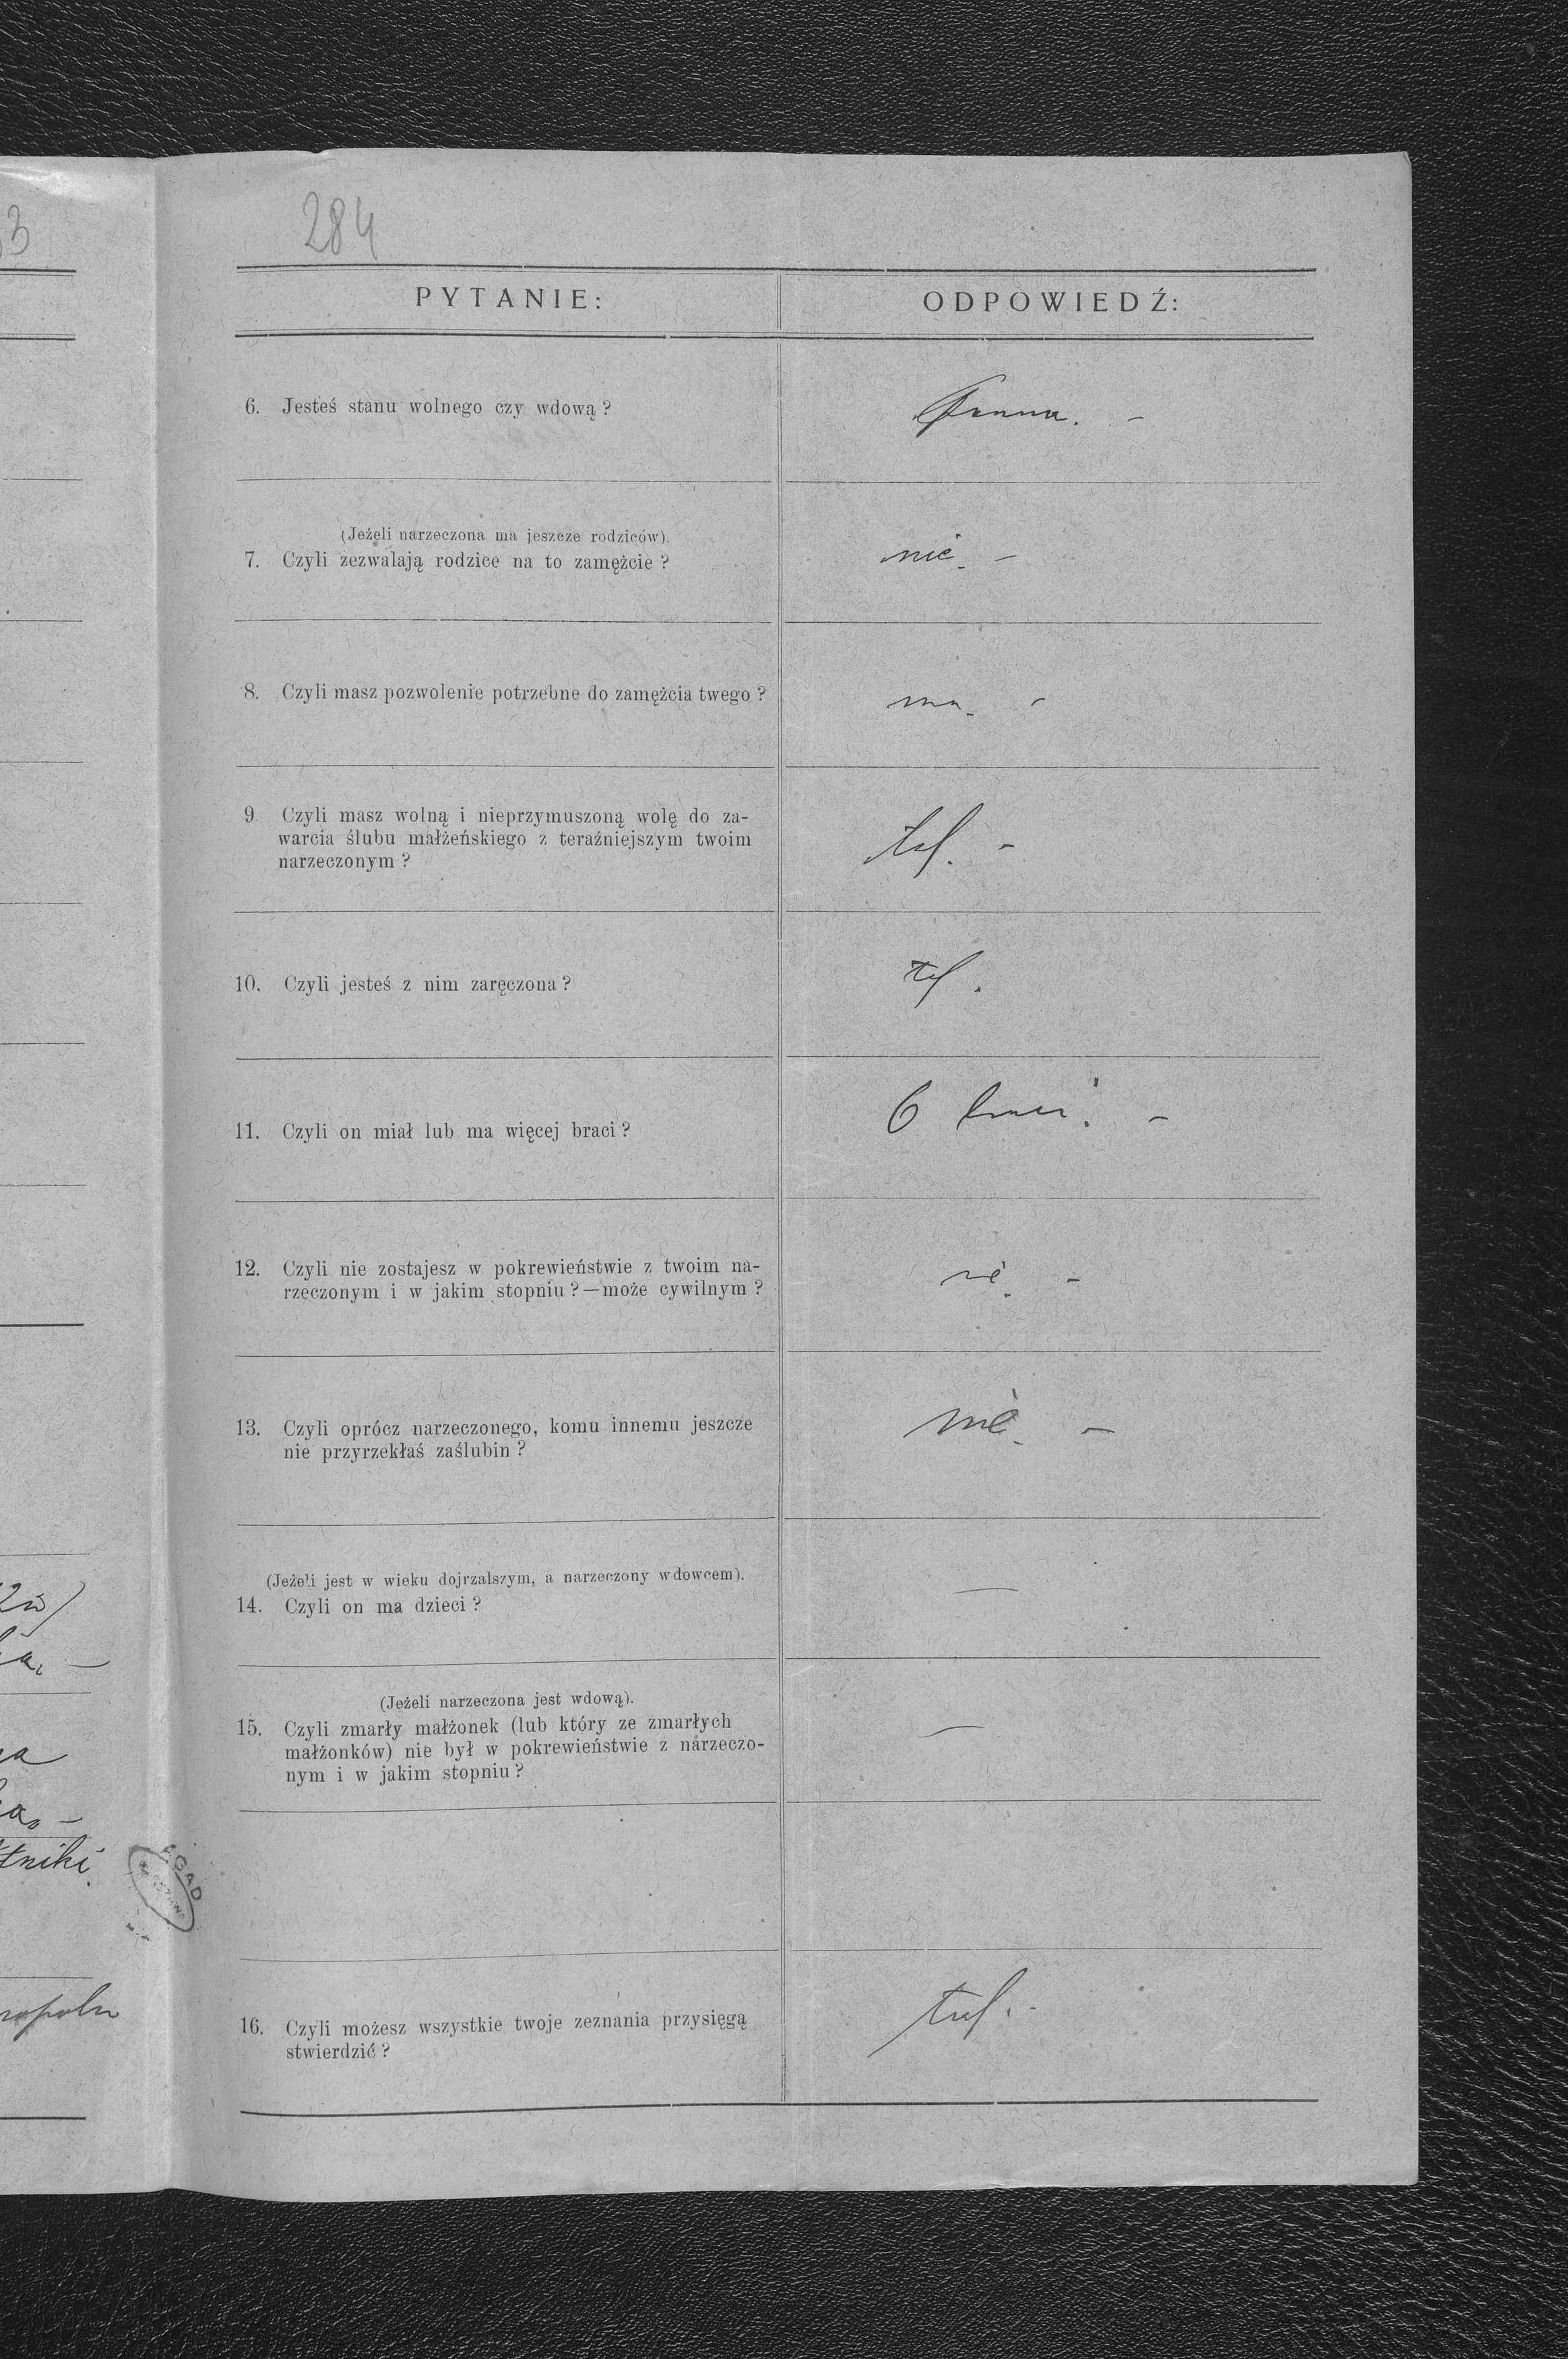 3
284
PYTANIE:
ODPOWIEDŹ:
6. Jesteś stanu wolnego czy wdową?
Panna. –
(Jeżeli narzeczona ma jeszcze rodziców).
7. Czyli zezwalają rodzice na to zamężcie?
nie. –
8. Czyli masz pozwolenie potrzebne do zamężcia twego?
ma. –
9 Czyli masz wolną i nieprzymuszoną wolę do za-
warcia ślubu małżeńskiego z teraźniejszym twoim
narzeczonym?
tak. –
10. Czyli jesteś z nim zaręczona?
tak.
11. Czyli on miał lub ma więcej braci?
6 braci. –
12. Czyli nie zostajesz w pokrewieństwie z twoim na-
rzeczonym i w jakim stopniu?—może cywilnym?
nie. –
13. Czyli oprócz narzeczonego, komu innemu jeszcze
nie przyrzekłaś zaślubin?
nie. –
(Jeżeli jest w wieku dojrzalszym, a narzeczony wdowcem).
14. Czyli on ma dzieci?
—
(Jeżeli narzeczona jest wdową).
15. Czyli zmarły małżonek (lub który ze zmarłych
małżonków) nie był w pokrewieństwie z narzeczo-
nym i w jakim stopniu?
—
AGAD
WARSZAWA
16. Czyli możesz wszystkie twoje zeznania przysięgą
stwierdzić?
tak. –